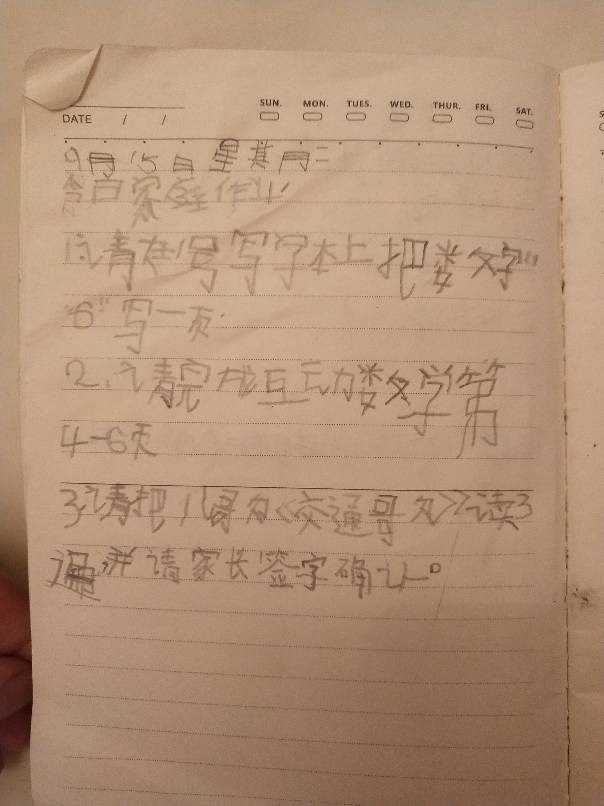 SUN. MON. TUES. WED. THUR. FRI. SAT.
DATE / /
9月15日星其月二
今日家庭作业
1.请在1号写字本上把数字"
"6"写一页.
2.请完成互动数学第
4-6页
3.请把儿哥为<交通哥欠>读3
遍,并请家长签字确认。